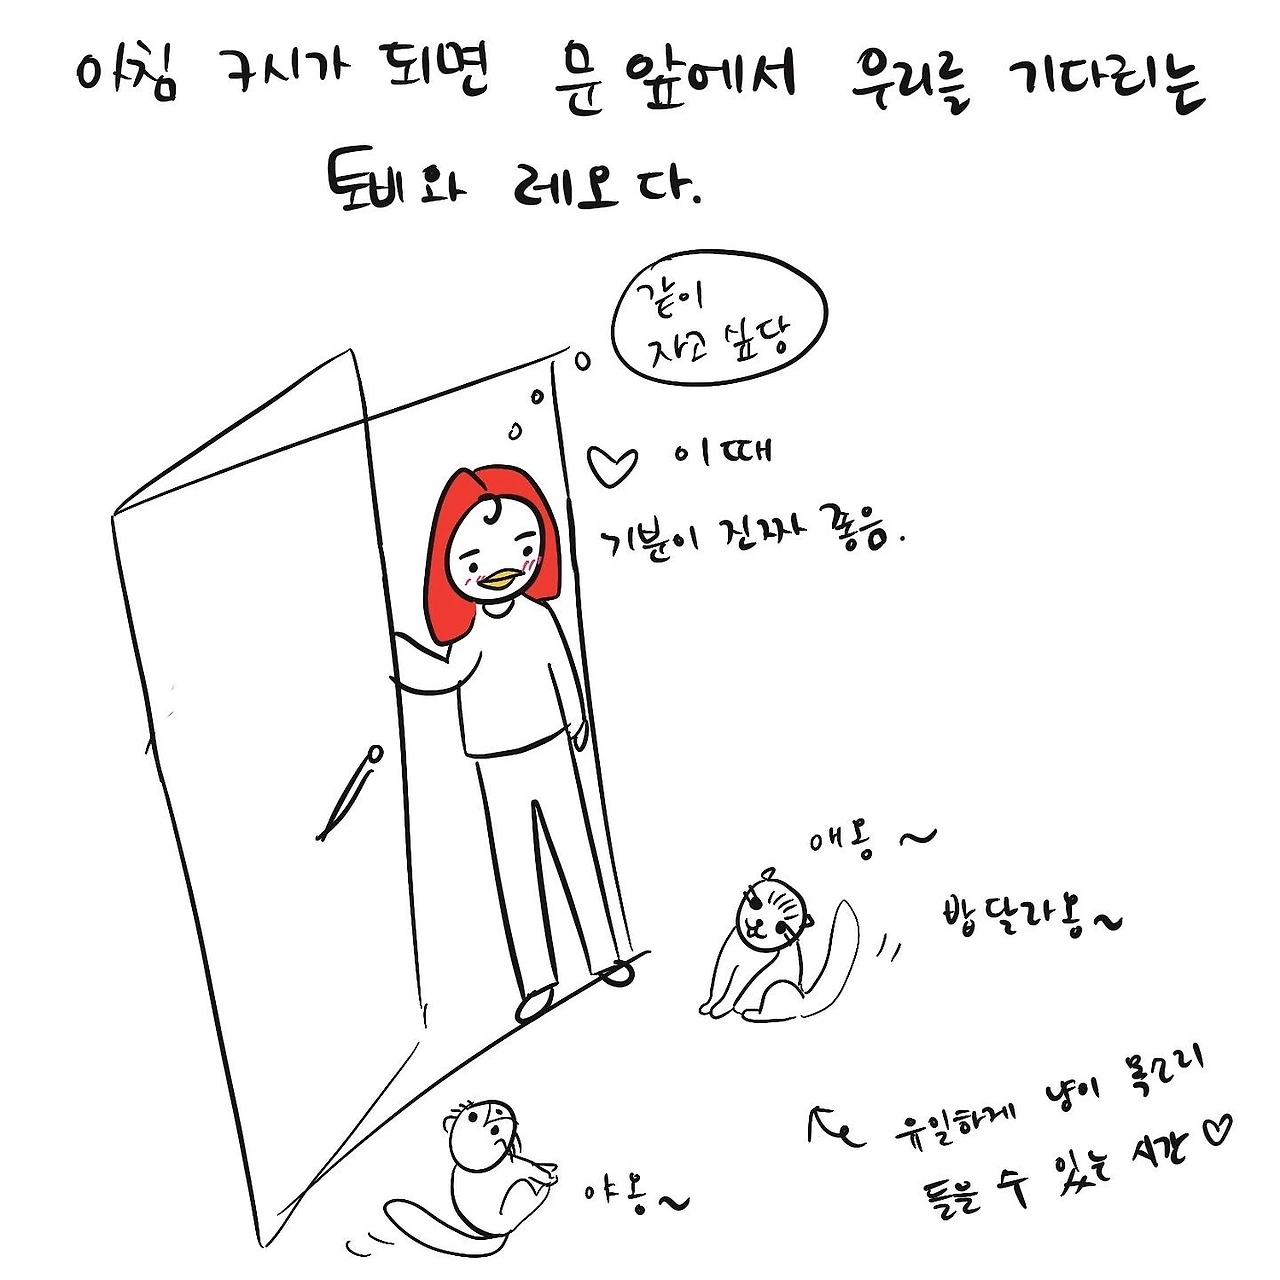 아침 7시가 되면 문 앞에서 우리를 기다리는
토비와 레오다.
같이
자고 싶당
♡ 이때
기분이 진짜 좋음.
애옹~
밥 달라옹~
유일하게 냥이 목소리
들을 수 있는 시간♡
야옹~